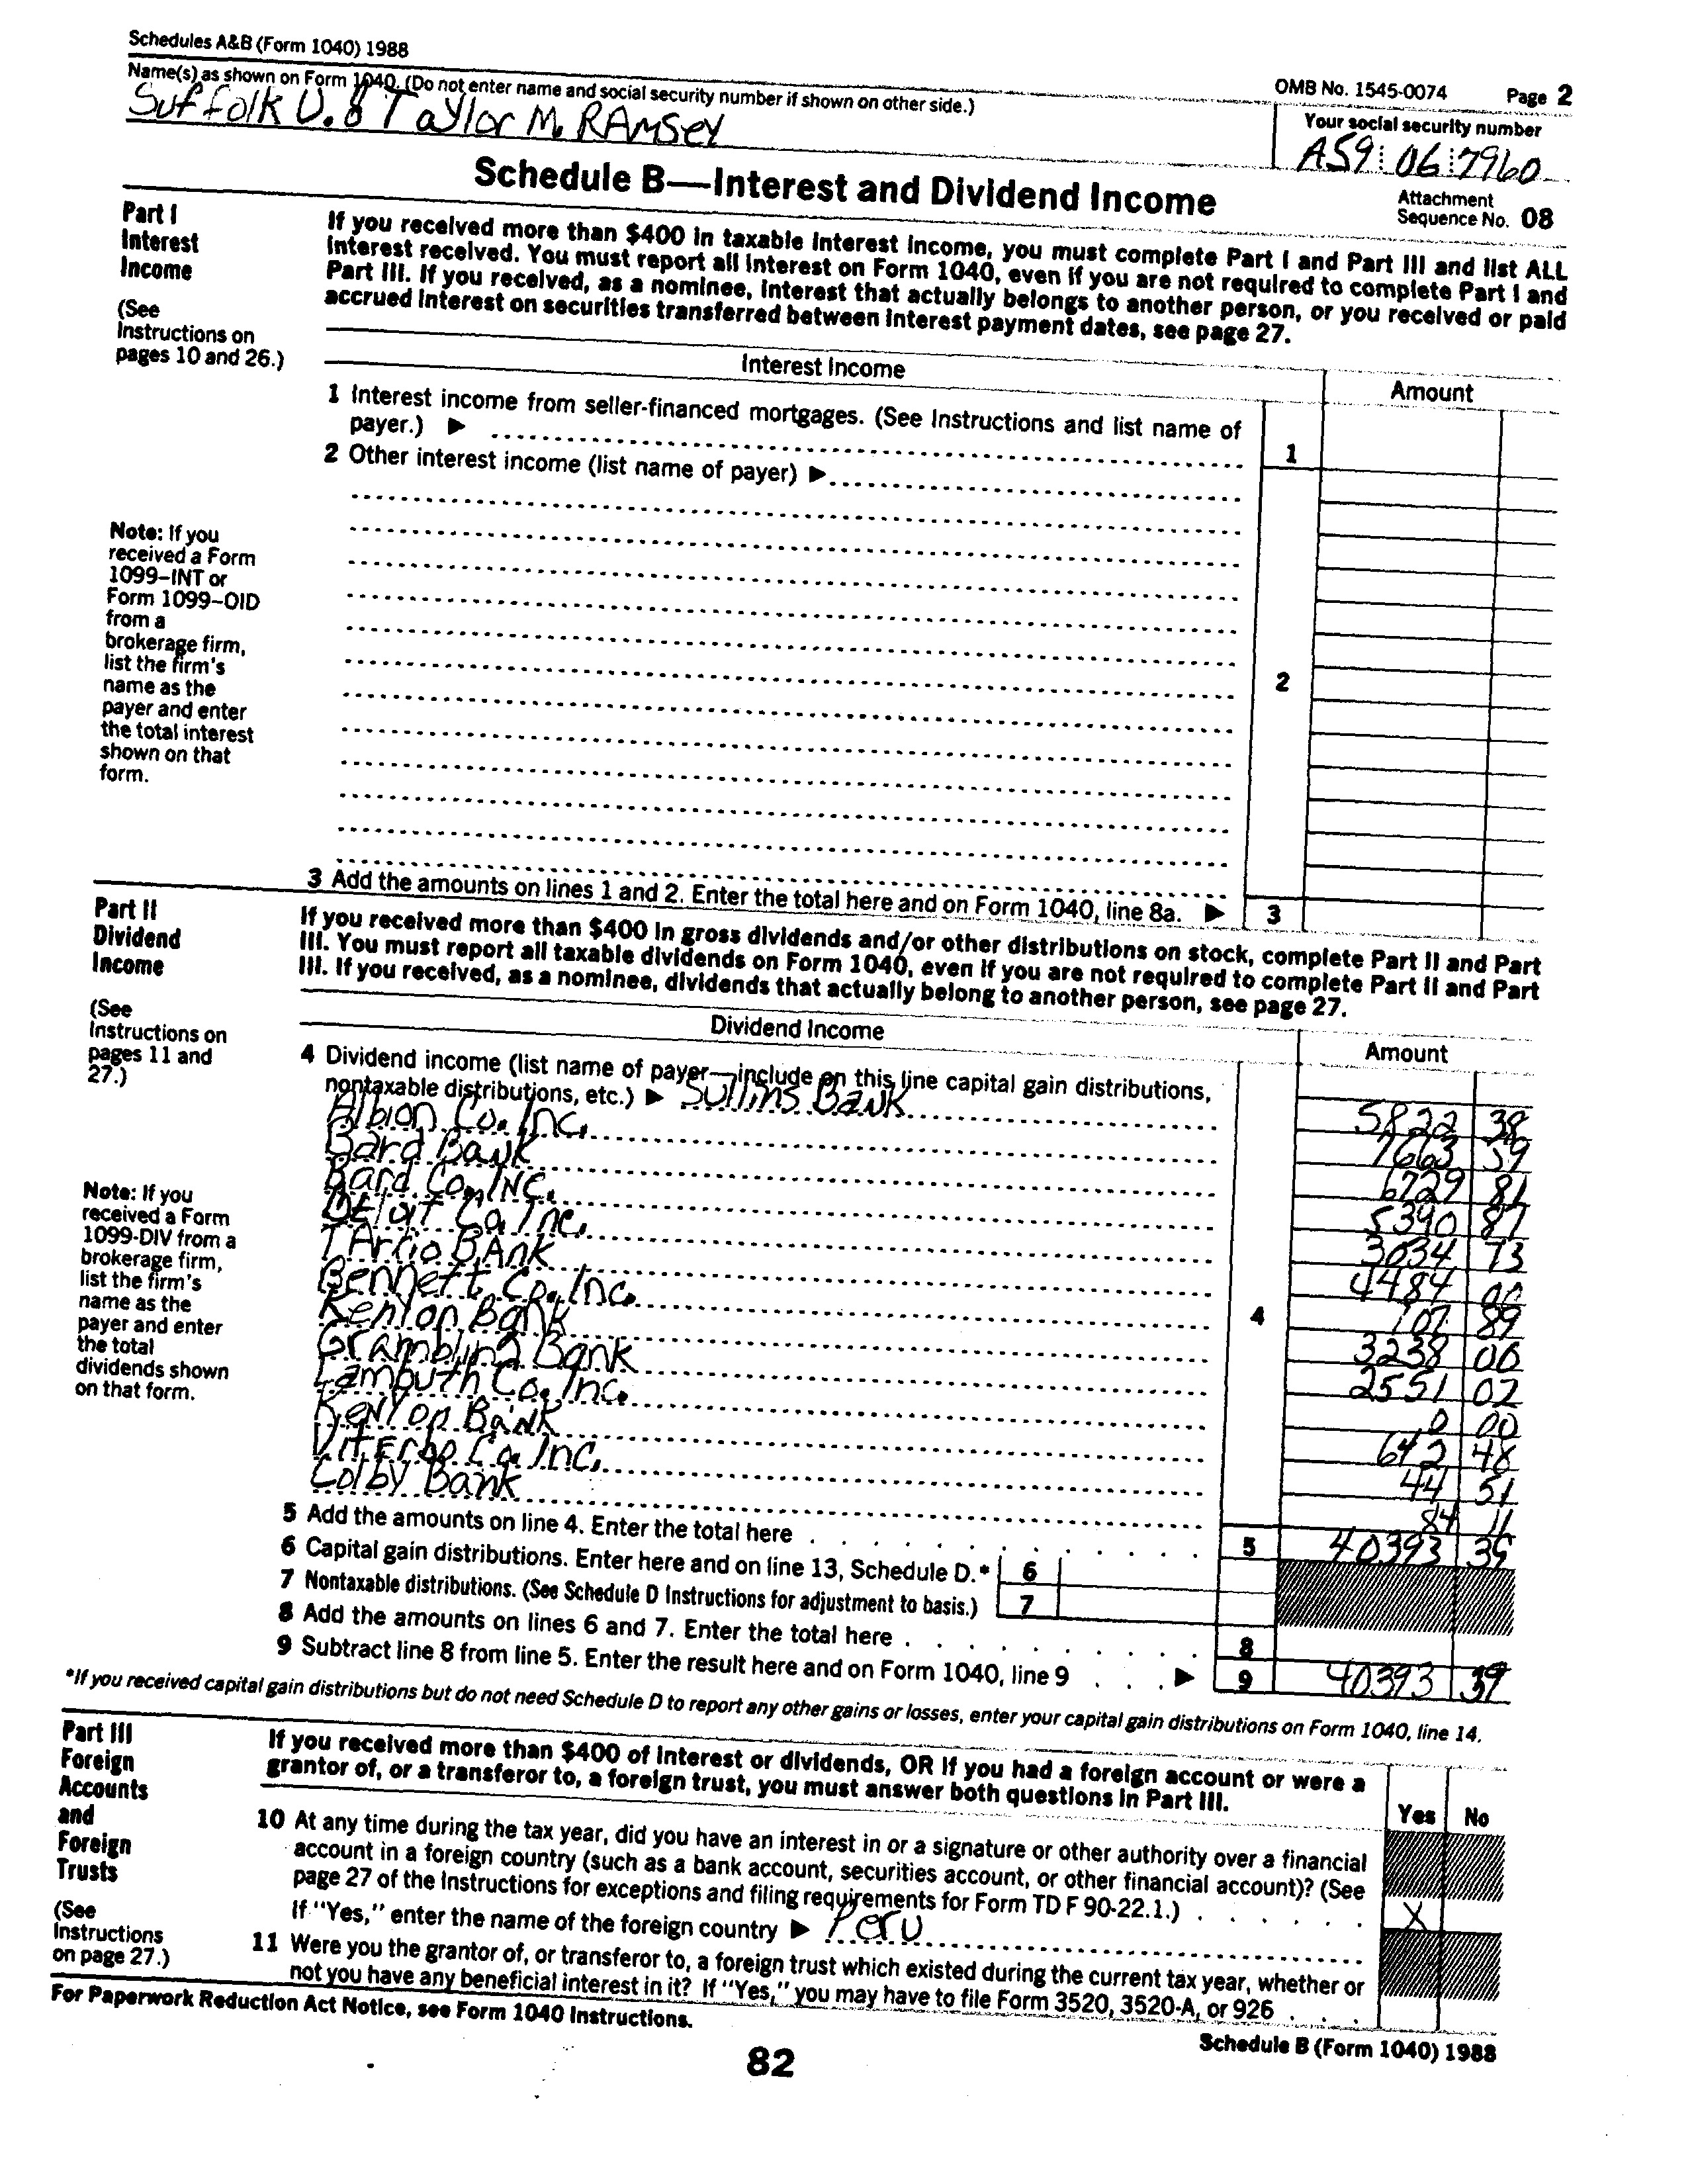 Schedules A&B (Form 1040) 1988
OMB No. 1545-0074 Page 2
Name(s) as shown on Form 1040. (Do not enter name and social security number if shown on other side.)
Your social security number
Suffolk U. & Taylor M. RAMSEY
A59 06 7960
Schedule B—Interest and Dividend Income
Attachment
Sequence No. 08
Part I
Interest
Income
(See
Instructions on
pages 10 and 26.)
If you received more than $400 in taxable interest income, you must complete Part I and Part III and list ALL
interest received. You must report all interest on Form 1040, even if you are not required to complete Part I and
Part III. If you received, as a nominee, interest that actually belongs to another person, or you received or paid
accrued interest on securities transferred between interest payment dates, see page 27.
Interest Income
Amount
1 Interest income from seller-financed mortgages. (See Instructions and list name of
payer.) ▶
1
2 Other interest income (list name of payer) ▶
Note: If you
received a Form
1099–INT or
Form 1099–OID
from a
brokerage firm,
list the firm's
name as the
payer and enter
the total interest
shown on that
form.
2
3 Add the amounts on lines 1 and 2. Enter the total here and on Form 1040, line 8a. ▶ 3
Part II
Dividend
Income
(See
Instructions on
pages 11 and
27.)
If you received more than $400 in gross dividends and/or other distributions on stock, complete Part II and Part
III. You must report all taxable dividends on Form 1040, even if you are not required to complete Part II and Part
III. If you received, as a nominee, dividends that actually belong to another person, see page 27.
Dividend Income
Amount
4 Dividend income (list name of payer—include on this line capital gain distributions,
nontaxable distributions, etc.) ▶ Sullins Bank 5822 38
Albion Co. Inc. 7663 59
Bard Bank 6729 81
Bard Co. INC. 5390 87
Beloit Co. Inc. 3634 73
TArkio BAnk 4484 00
Bennett Co. Inc. 107 89
Kenyon Bank 3238 00
Grambling Bank 2551 02
Lambuth Co. Inc. 0 00
Kenyon Bank 642 48
Viterbo Co. Inc. 44 51
Colby Bank 84 11
Note: If you
received a Form
1099-DIV from a
brokerage firm,
list the firm's
name as the
payer and enter
the total
dividends shown
on that form.
4
5 Add the amounts on line 4. Enter the total here 5 40393 39
6 Capital gain distributions. Enter here and on line 13, Schedule D.* 6
7 Nontaxable distributions. (See Schedule D Instructions for adjustment to basis.) 7
8 Add the amounts on lines 6 and 7. Enter the total here 8
9 Subtract line 8 from line 5. Enter the result here and on Form 1040, line 9 ▶ 9 40393 39
*If you received capital gain distributions but do not need Schedule D to report any other gains or losses, enter your capital gain distributions on Form 1040, line 14.
Part III
Foreign
Accounts
and
Foreign
Trusts
(See
Instructions
on page 27.)
If you received more than $400 of interest or dividends, OR if you had a foreign account or were a
grantor of, or a transferor to, a foreign trust, you must answer both questions in Part III.
Yes No
10 At any time during the tax year, did you have an interest in or a signature or other authority over a financial
account in a foreign country (such as a bank account, securities account, or other financial account)? (See
page 27 of the Instructions for exceptions and filing requirements for Form TD F 90-22.1.) X
If "Yes," enter the name of the foreign country ▶ Peru
11 Were you the grantor of, or transferor to, a foreign trust which existed during the current tax year, whether or
not you have any beneficial interest in it? If "Yes," you may have to file Form 3520, 3520-A, or 926
For Paperwork Reduction Act Notice, see Form 1040 Instructions.
Schedule B (Form 1040) 1988
82